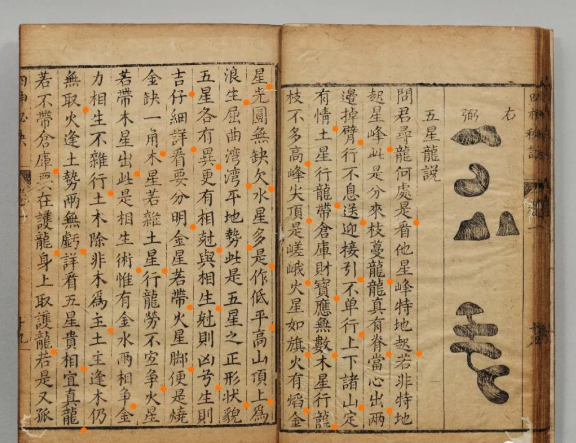 右
弼
五星龍說
問君尋龍何處是看他星峰特地起若非特地
起星峰此是分來枝蔓龍龍真有脊當心出兩
邊掉臂行不息送迎接引不單行上下諸山定
有情土星行龍帶倉庫財寶應無數木星行龍
枝不多高峰尖頂是嵯峨火星如旗火有焰金
星光圓無缺欠水星多是作低平高山頂上為
浪生屈曲灣灣平地勢此是五星之正形狀貌
五星各有異更有相尅與相生尅則凶兮生則
吉仔細詳看要分明金星若帶火星脚便是燒
金缺一角木星若雜土星行龍勞不宓争火星
若帶木星出此是相生術惟有金水兩相爭金
力相生不雜行土木除非木爲主土主逢木仍
無取火逢土勢兩無虧詳看五星貴相宜真龍
若不帶倉庫要在護龍身上取護龍若是又孤